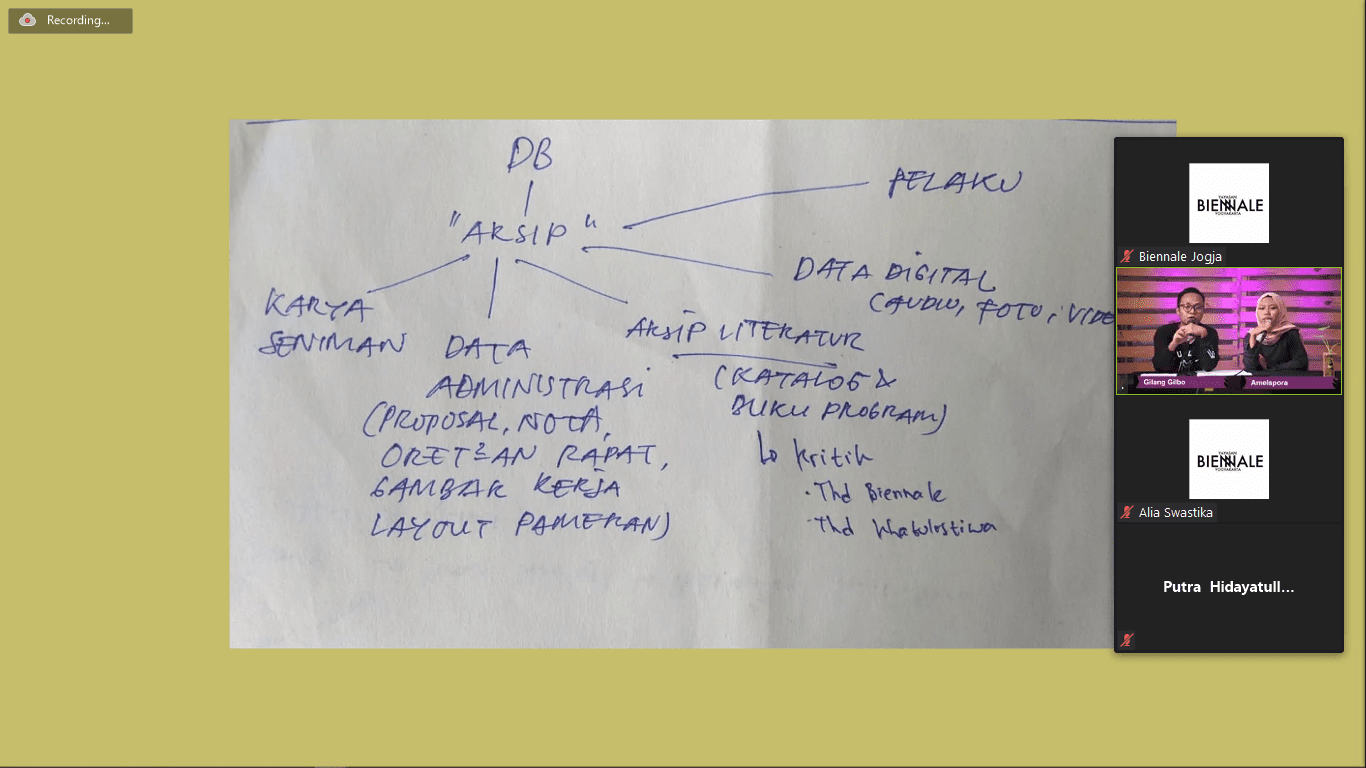 Recording...
DB
"ARSIP"
PELAKU
DATA DIGITAL
(AUDIO, FOTO, VIDE
KARYA
SENIMAN
DATA
ADMINISTRASI
(PROPOSAL, NOTA,
ORET²AN RAPAT,
GAMBAR KERJA
LAYOUT PAMERAN)
ARSIP LITERATUR
(KATALOG &
BUKU PROGRAM)
↳ kritik
· Thd Biennale
· Thd khatulistiwa
YAYASAN
BIENNALE
YOGYAKARTA
Biennale Jogja
Gilang Gilbo
Amelspora
YAYASAN
BIENNALE
YOGYAKARTA
Alia Swastika
Putra Hidayatull...